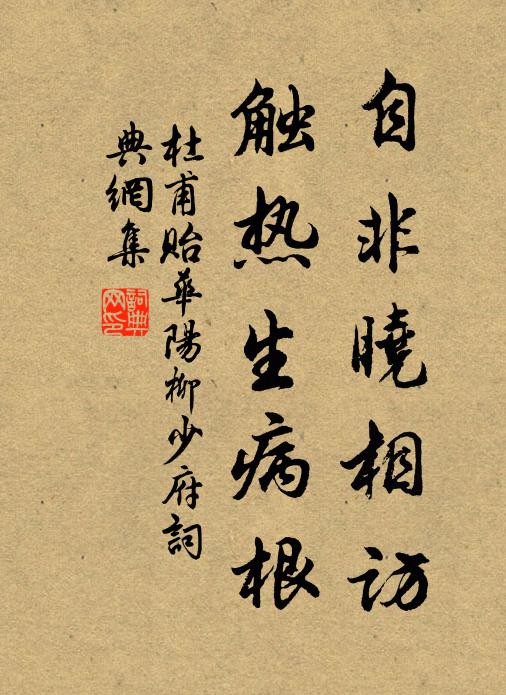 自非曉相访
触热生病根
杜甫貽華陽柳少府詞
典網集
詞典
网印